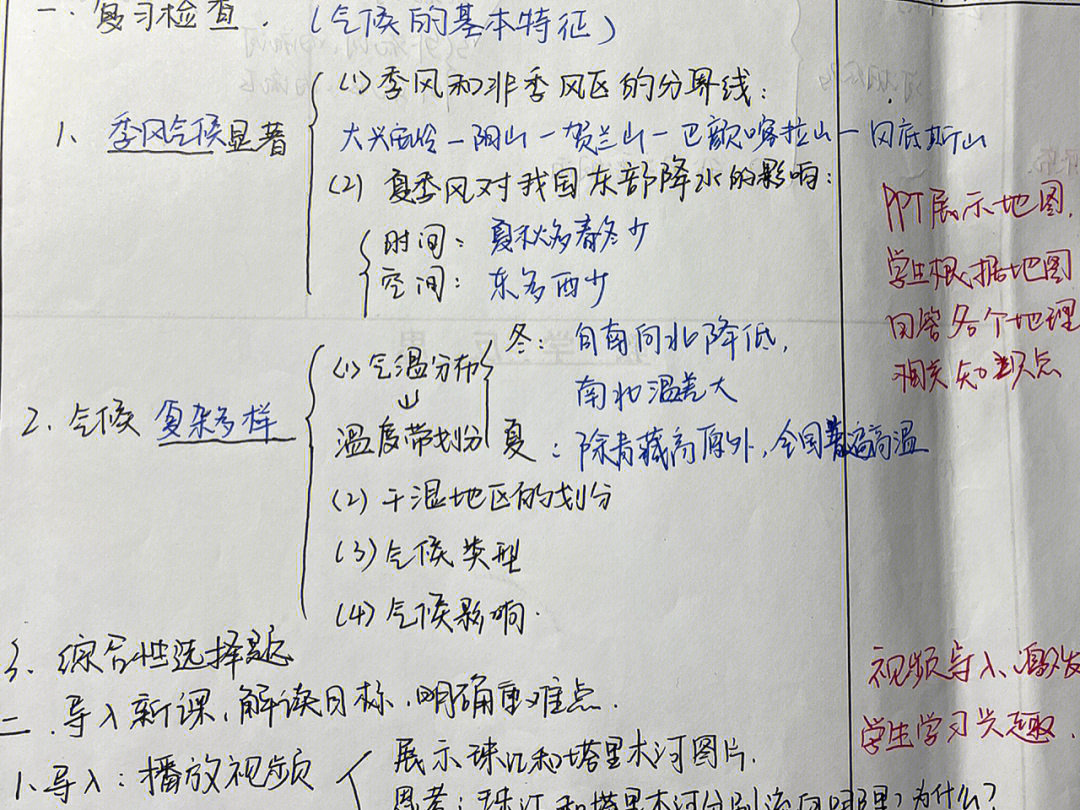 一. 复习检查. (气候的基本特征)
(1) 季风和非季风区的分界线:
1. 季风气候显著
大兴安岭—阴山—贺兰山—巴颜喀拉山—冈底斯山
(2) 夏季风对我国东部降水的影响:
时间: 夏秋多春冬少
空间: 东多西少
PPT展示地图,
学生根据地图
回答各个地理
相关知识点
冬: 自南向北降低,
(1) 气温分布
南北温差大
2. 气候复杂多样
温度带划分
夏: 除青藏高原外, 全国普遍高温
(2) 干湿地区的划分
(3) 气候类型
(4) 气候影响.
3. 综合性选择题
二. 导入新课, 解读目标, 明确重难点.
视频导入、激发
学生学习兴趣.
1. 导入: 播放视频
展示珠江和塔里木河图片.
思考: 珠江和塔里木河分别流向哪里? 为什么?